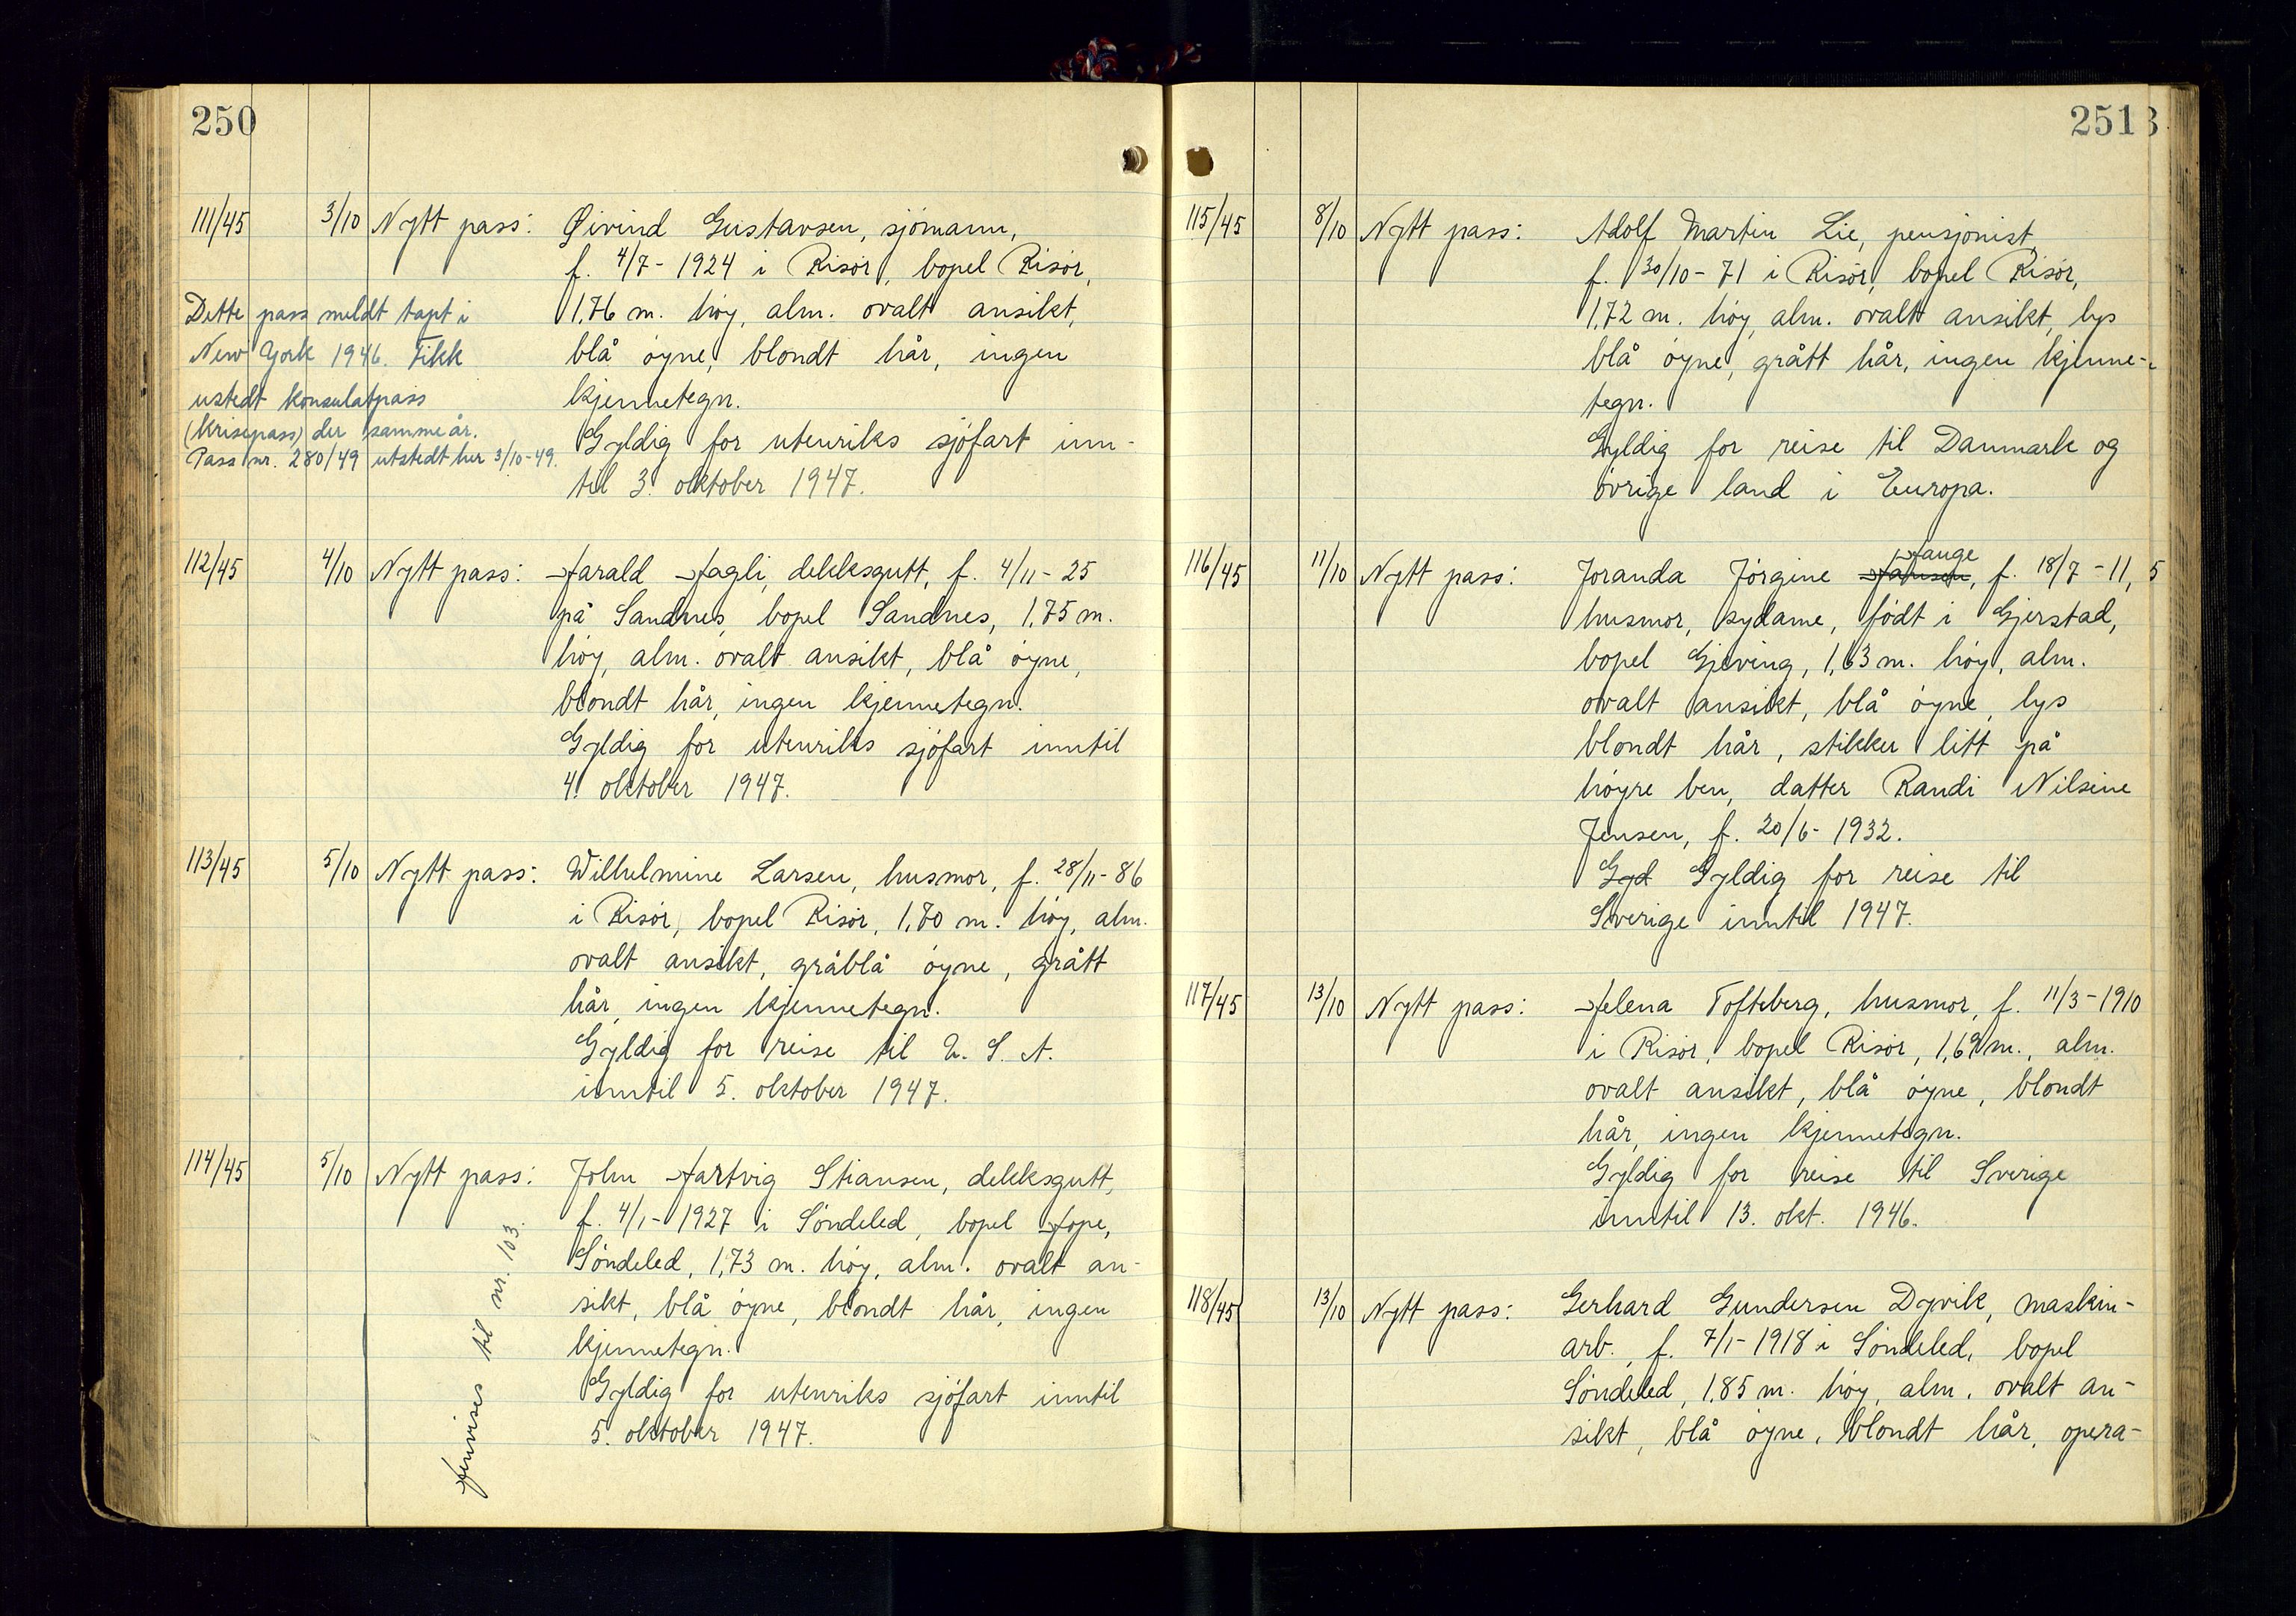 250
111/45 3/10 Nytt pass: Øivind Gustavsen, sjömann,
f. 4/7 - 1924 i Risör, bopel Risör,
1,76 m. höy, alm. ovalt ansikt,
blå öyne, blondt hår, ingen
kjennetegn.
Gyldig for utenriks sjöfart inn-
til 3. oktober 1947.
Dette pass meldt tapt i
New York 1946. Fikk
ustedt konsulatpass
(krisepass) der samme år.
Pass nr. 280/49 utstedt her 3/10-49.
112/45 4/10 Nytt pass: Harald Hagli, dekksgutt, f. 4/11 - 25
på Sandnes, bopel Sandnes, 1,75 m.
höy, alm. ovalt ansikt, blå öyne,
blondt hår, ingen kjennetegn.
Gyldig for utenriks sjöfart inntil
4. oktober 1947.
113/45 5/10 Nytt pass: Wilhelmine Larsen, husmor, f. 28/11 - 86
i Risör, bopel Risör, 1,80 m. höy, alm.
ovalt ansikt, gråblå öyne, grått
hår, ingen kjennetegn.
Gyldig for reise til U. S. A.
inntil 5. oktober 1947.
114/45 5/10 Nytt pass: John Hartvig Stiansen, dekksgutt,
f. 4/1 - 1927 i Söndeled, bopel Hope,
Söndeled, 1,73 m. höy, alm. ovalt an-
sikt, blå öyne, blondt hår, ingen
kjennetegn.
Gyldig for utenriks sjöfart inntil
5. oktober 1947.
Henvises til nr. 103.
251
115/45 8/10 Nytt pass: Adolf Martin Lie, pensjonist,
f. 30/10 - 71 i Risör, bopel Risör,
1,72 m. höy, alm. ovalt ansikt, lys
blå öyne, grått hår, ingen kjenne-
tegn.
Gyldig for reise til Danmark og
övrige land i Europa.
Hauge
116/45 11/10 Nytt pass: Joranda Jörgine Hansen, f. 18/7 - 11,
husmor, sydame, födt i Gjerstad,
bopel Gjeving, 1,63 m. höy, alm.
ovalt ansikt, blå öyne, lys
blondt hår, stikker litt på
höyre ben, datter Randi Nilsine
Jensen, f. 20/6 - 1932.
Gyd Gyldig for reise til
Sverige inntil 1947.
117/45 13/10 Nytt pass: Helena Tofteberg, husmor, f. 11/3 - 1910
i Risör, bopel Risör, 1,69 m., alm.
ovalt ansikt, blå öyne, blondt
hår, ingen kjennetegn.
Gyldig for reise til Sverige
inntil 13. okt. 1946.
118/45 13/10 Nytt pass: Gerhard Gundersen Dyvik, maskin-
arb., f. 7/1 - 1918 i Söndeled, bopel
Söndeled, 1,85 m. höy, alm. ovalt an-
sikt, blå öyne, blondt hår, opera-